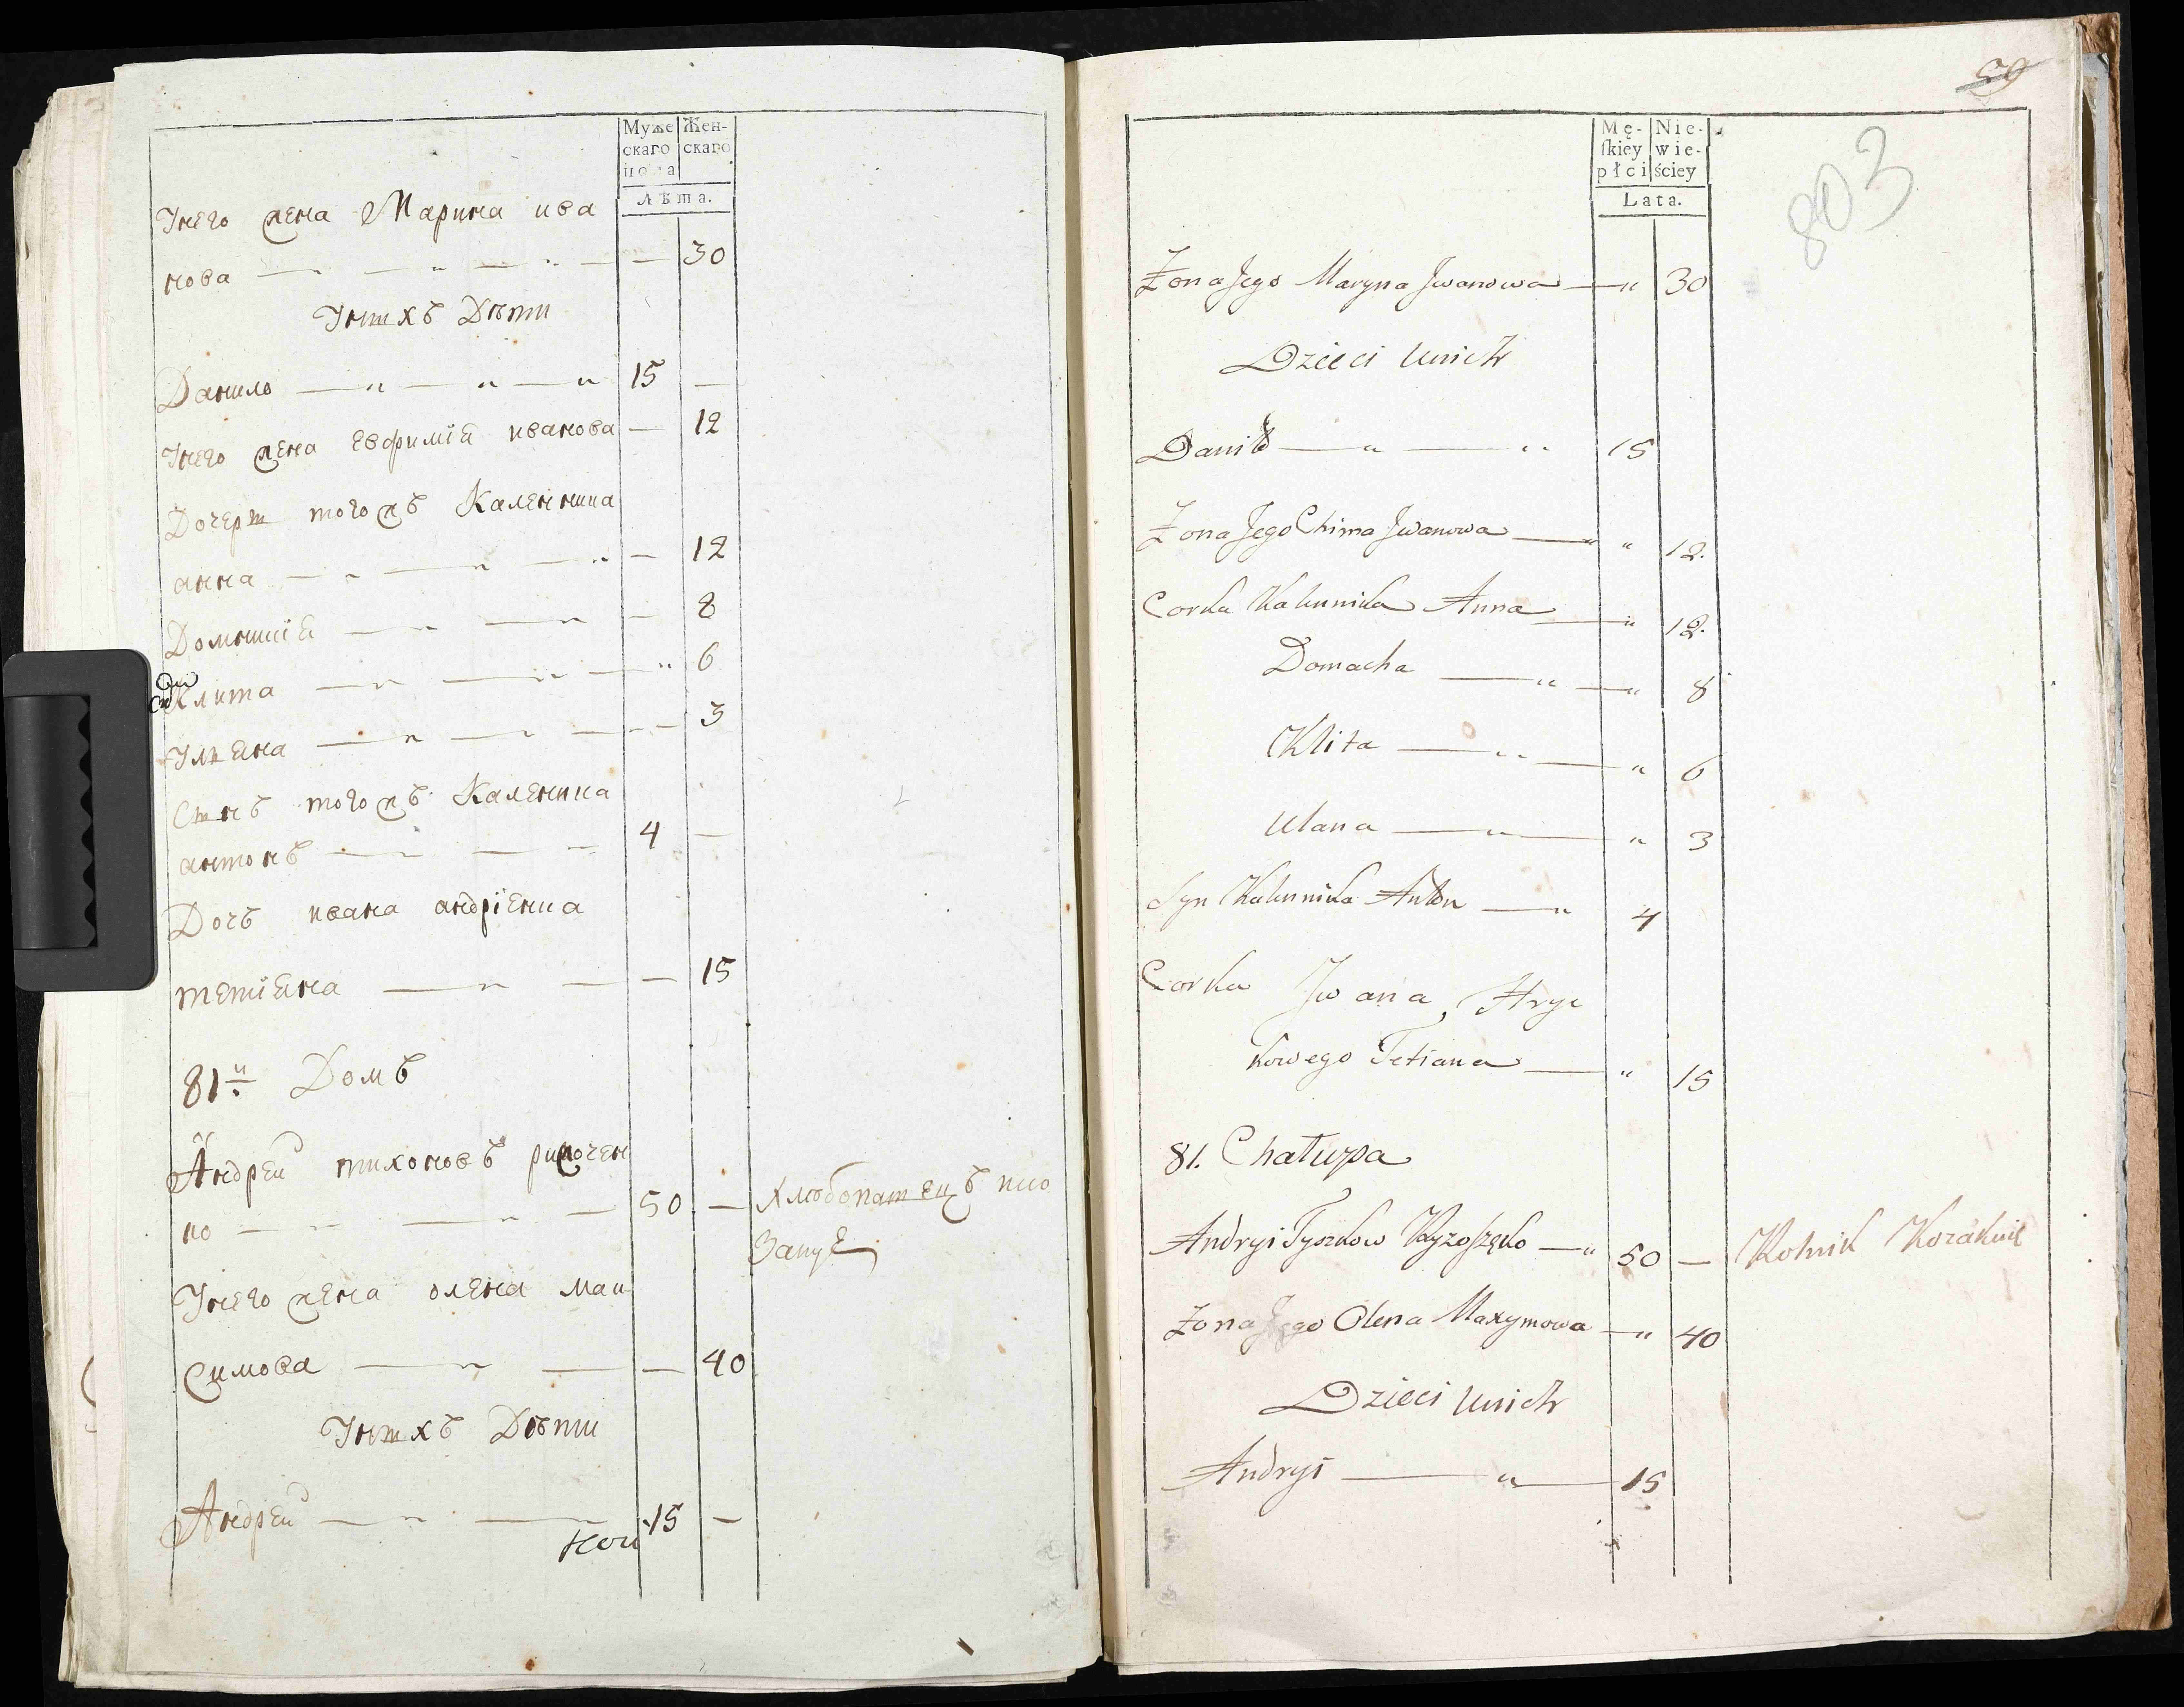 Муже Жен-
скаго скаго
пола
Лѣта.
Унего жена Марина ива
нова — — — 30
Уныхъ Дѣти
Данило — — — 15 —
Унего жена Евфимія иванова — 12
Дочеры тогожъ Каленика
анна — — — 12
Домникія — — — 8
Клита — — — 6
Ульяна — — — 3
Сынъ тогожъ Каленика
антонъ — — — 4 —
Дочъ ивана андрієнка
тетіяна — — — 15
81й Домъ
Андрей тихоновъ
ко — — — 50 — хлѣбопатецъ
Унего жена олена мак
симова — — — 40
Уныхъ Дѣти
Андрей — — — 15 —
59
803
Mę- Nie-
skiey wie-
płci ściey
Lata.
Żona Jego Maryna Jwanowa — " 30
Dzieci unich
Daniło — " — " 15
Żona Jego Chima Jwanowa — " " 12.
Corka Kalennika Anna — " 12.
Domacha — " — " 8
Klita — " — " 6
Ulana — " — " 3
Syn Kalennika Anton — " 4
Corka Jwana Hryc
kowego Tetiana — " 15
81. Chałupa
Andryi Tyszkow — " 50 — Rolnik
Żona Jego Olena Maxymowa — " 40
Dzieci unich
Andryi — " — 15